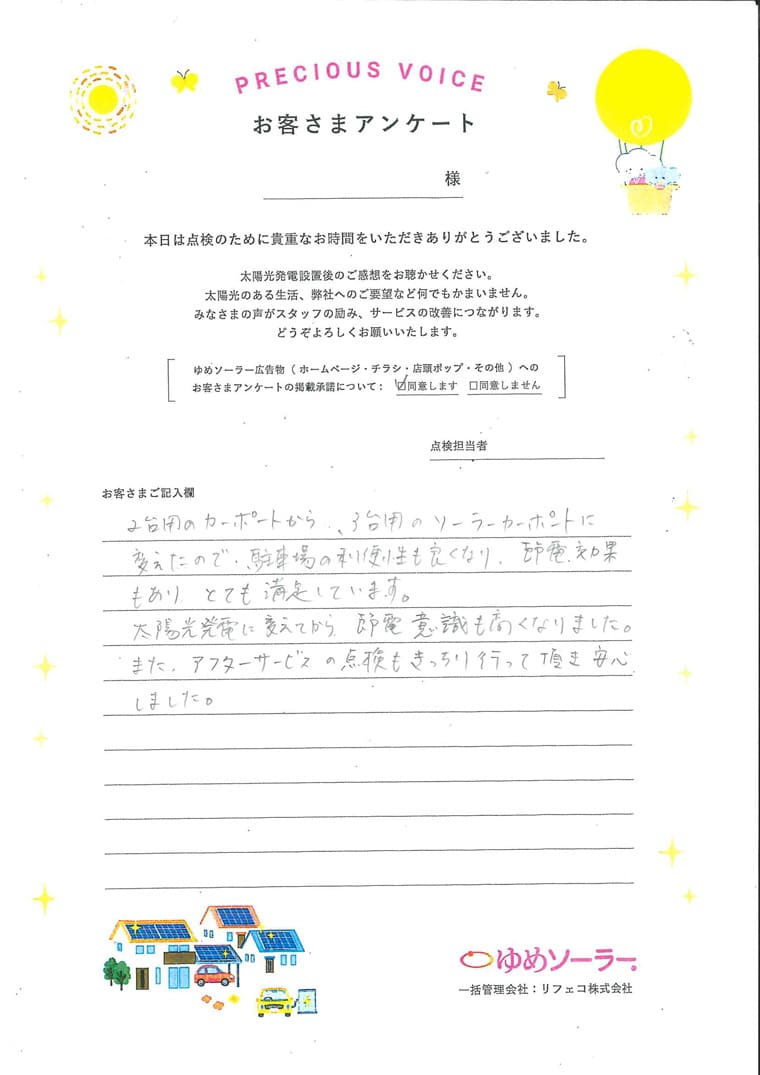 PRECIOUS VOICE
お客さまアンケート
様
本日は点検のために貴重なお時間をいただきありがとうございました。
太陽光発電設置後のご感想をお聴かせください。
太陽光のある生活、弊社へのご要望など何でもかまいません。
みなさまの声がスタッフの励み、サービスの改善につながります。
どうぞよろしくお願いいたします。
ゆめソーラー広告物(ホームページ・チラシ・店頭ポップ・その他)への
お客さまアンケートの掲載承諾について: ☑同意します □同意しません
点検担当者
お客さまご記入欄
2台用のカーポートから、3台用のソーラーカーポートに
変えたので、駐車場の利便性も良くなり、節電効果
もあり とても満足しています。
太陽光発電に変えてから 節電意識も高くなりました。
また、アフターサービスの点検もきっちり行って頂き安心
しました。
ゆめソーラー
一括管理会社:リフェコ株式会社